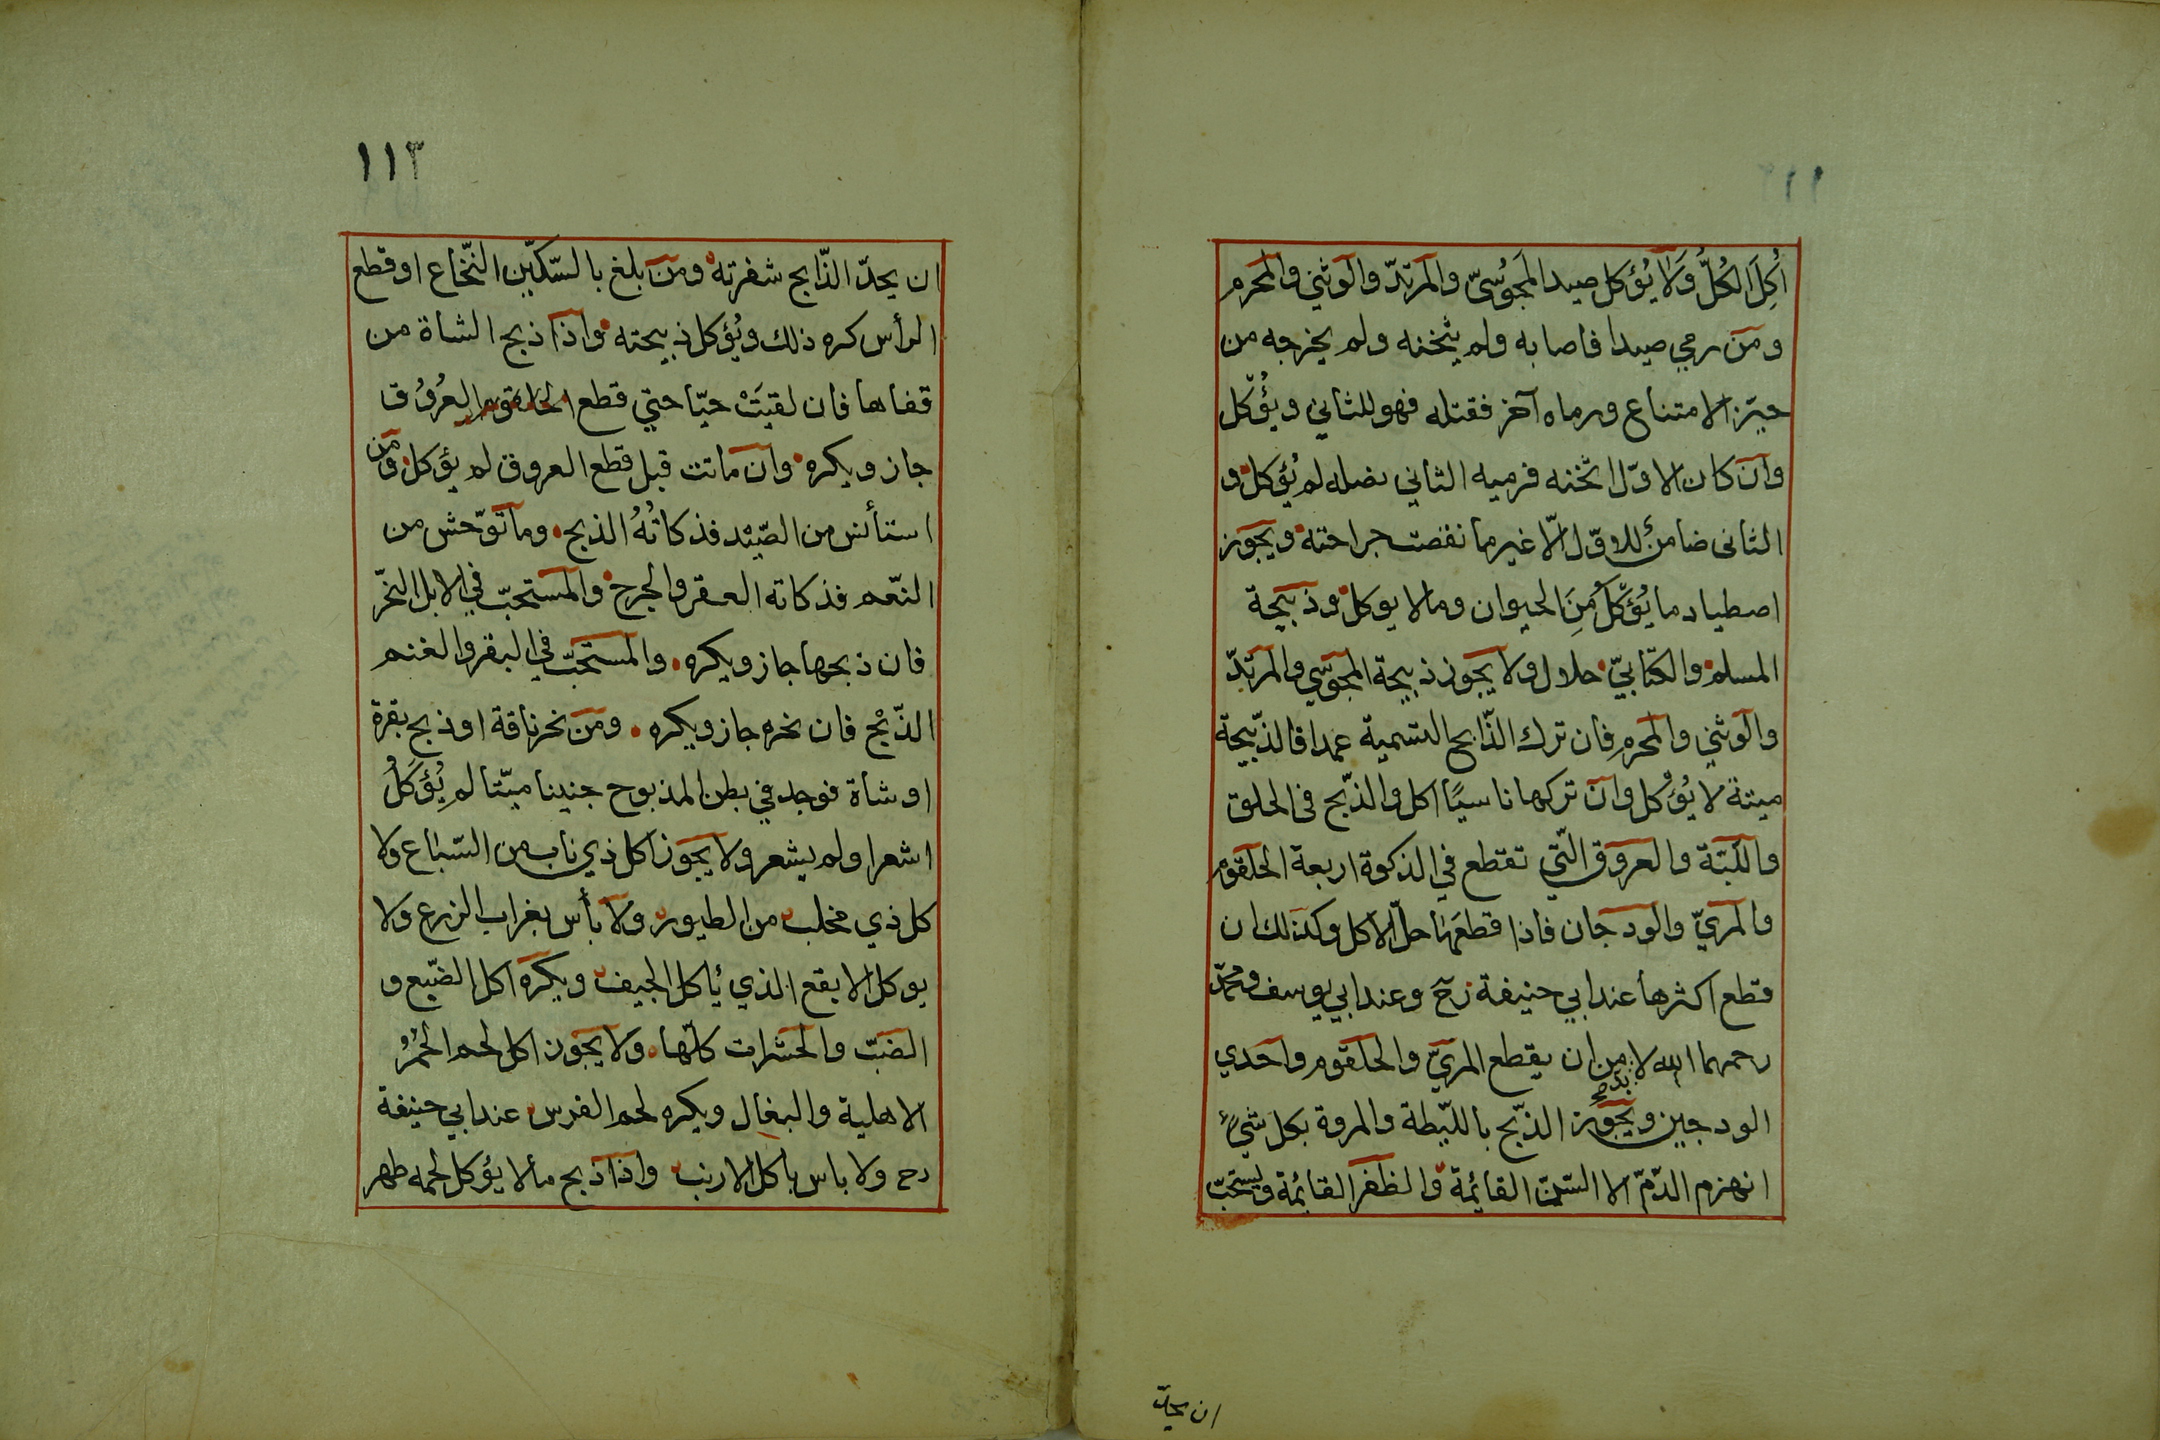 اُكِلَ الكُلُّ وَلَا يُؤكل صيد المَجُوُسّىّ والمرتدّ والوثني والمحرم
ومن رمي صيدا فاصابه ولم يثخنه ولم يخرجه من
حيّز الامتناع ورماه آخر فقتله فهو للثاني ويُؤكل
وان كان الاوّل اثخنه فرميه الثاني فقتله لم يُؤكل و
الثانى ضامنٌ للاوّل الّا غير ما نقصت جراحته ويجوز
اصطياد ما يُؤكَلُ مِنَ الحيوان وما لا يوكل وذبيحة
المسلم والكتابيّ حلال ولا يجوز ذبيحة المجوسي والمرتدّ
والوثني والمحرم فان ترك الذّابح التسمية عمدا فالذّبيحة
ميتة لا يُؤكل وان تركها ناسيًا اكل والذّبح فى الحلق
واللّبّة والعروق الّتي تقتطع في الذكوة اربعة الحلقوم
والمريّ والودجان فاذا قطعَها حلّ الاكل وكذلك ان
قطع اكثرها عند ابي حنيفة رح وعند ابي يوسف ومحمّد
رحمهما الله لا بدّ من ان يقطع المريّ والحلقوم واحدي
الودجين ويجوز الذّبح باللّيطة والمروة بكل شيءٍ
انهزم الدّمّ الا السّنّ القائمة والظفر القائمة ويستحبّ
ان يحدّ
١١٣
ان يحدّ الذّابح شفرته ومن بلغ بالسّكّين النّخاع او قطع
الرأس كره ذلك ويُؤكل ذبيحته واذا ذبح الشاة من
قفاها فان لقيَتْ حيّا حتي قطع الحلقوم العُرُوُق
جاز ويكره وان ماتت قبل قطع العروق لم يؤكل ومن
استأنس من الصّيْد فذكاتُهُ الذبح وما توّحش من
النعّم فذكاته العقر والجرح والمستحبّ في الابل النّحر
فان ذبحها جاز ويكره والمستحبّ في البقر والغنم
الذّبْح فان نحره جاز ويكره ومن نحر ناقة او ذبح بقرة
او شاة فوجد في بطن المذبوح جنينا ميّتا لم يُؤَكَلُ
اشعر او لم يشعر ولا يجوز اكل ذي ناب من السّباع ولا
كل ذي مخلب من الطيور ولا بأس بغراب الزرع ولا
يوكل الابقع الذي يأكل الجيف ويكره اكل الضّبع و
الضبّ والحشرات كلّها ولا يجوز اكل لحم الحُمُرُ
الاهلية والبغال ويكره لحم الفرس عند ابي حنيفة
رح ولا باس باكل الارنب واذا ذبح ما لا يؤكل لحمه طهر